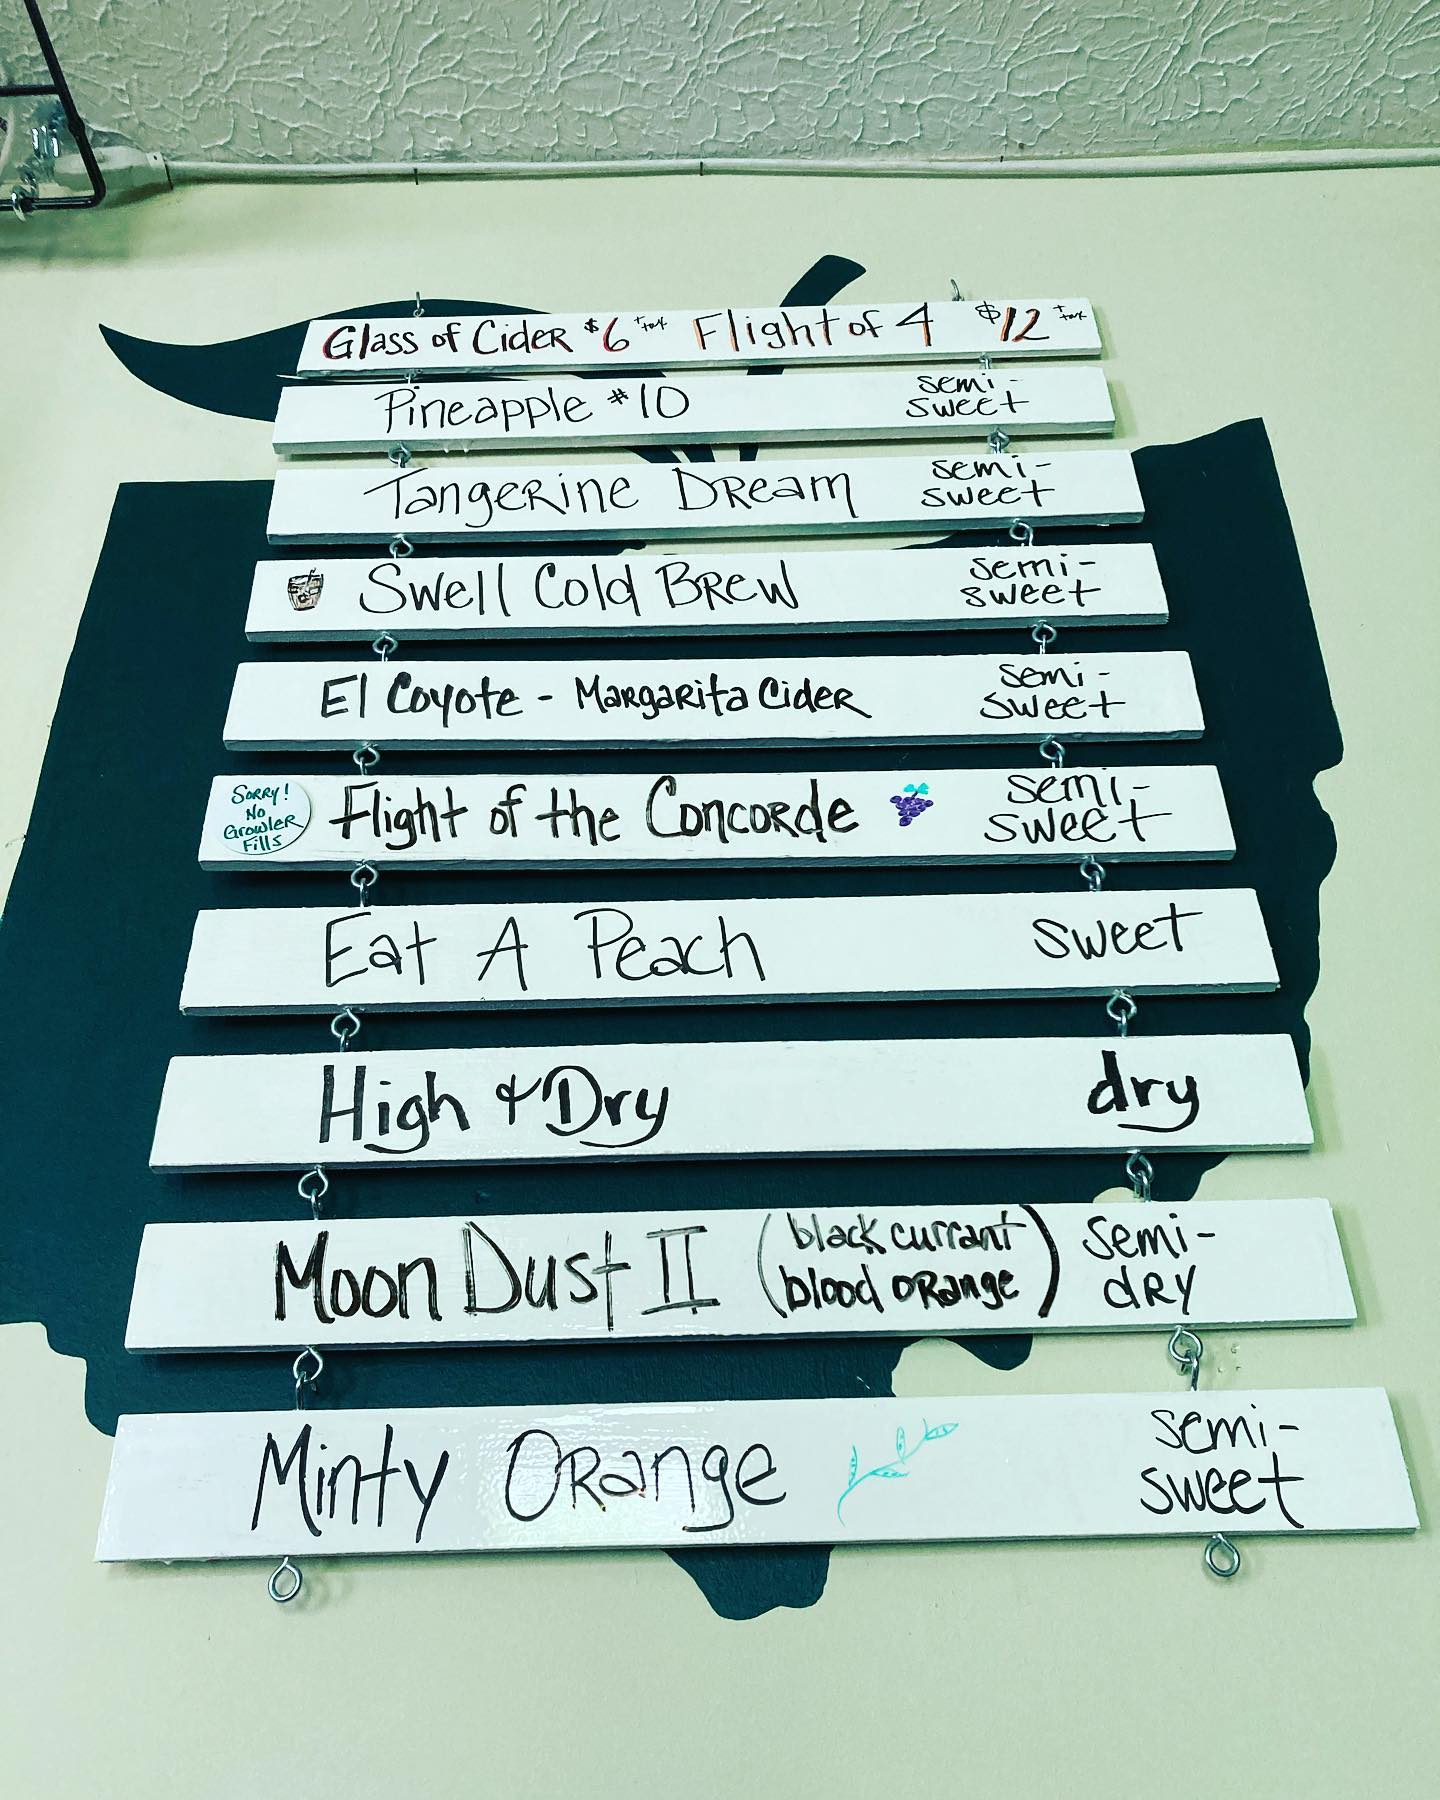 Glass of Cider $6 + tax Flight of 4 $12 + tax
Pineapple #10
semi-
sweet
Tangerine Dream
semi-
sweet
Swell Cold Brew
semi-
sweet
El Coyote - Margarita Cider
semi-
sweet
Sorry!
No
Growler
Fills
Flight of the Concorde
semi-
sweet
Eat A Peach sweet
High & Dry dry
Moon Dust II
(black currant
blood orange)
semi-
dry
Minty Orange
semi-
sweet